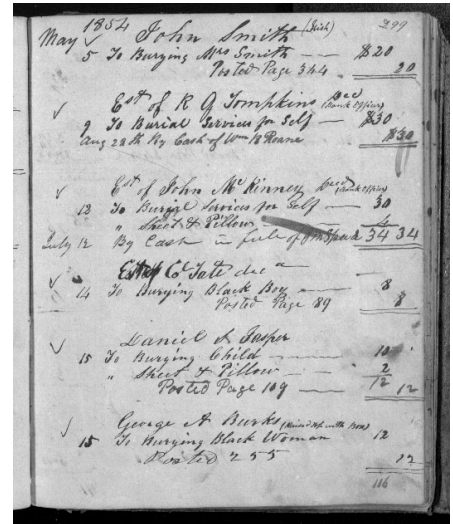 1854 John Smith (Irish) 299
May
5 To Burying Mrs Smith — $20
Posted Page 344 20
Est of R G Tompkins Decd (Bank Officer)
9 To Burial Services for Self — $30
Aug 28th By Cash of Wm B Roane $30
Est of John McKinney Decd (Bank Officer)
12 To Burial Services for Self — 30
" Sheet & Pillow 4
July 12 By Cash in full of 34 34
Est of C Tate dec
14 To Burying Black Boy 8
Posted Page 89 8
Daniel S Jasper
15 To Burying Child 10
" Sheet & Pillow — 2
Posted Page 109 — 12 12
George A Burks (with Box)
15 To Burying Black Woman 12
Posted 255 12
116